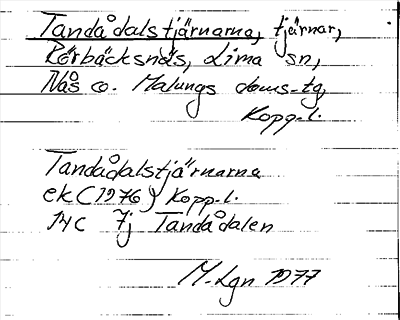 Tandådalstjärnarna, tjärnar,
Rörbäcksnäs, Lima sn,
Nås o. Malungs doms.-tg,
Kopp.l.
Tandådalstjärnarna
ek (1976) Kopp.l.
14C 7j Tandådalen
M.Lgn 1977